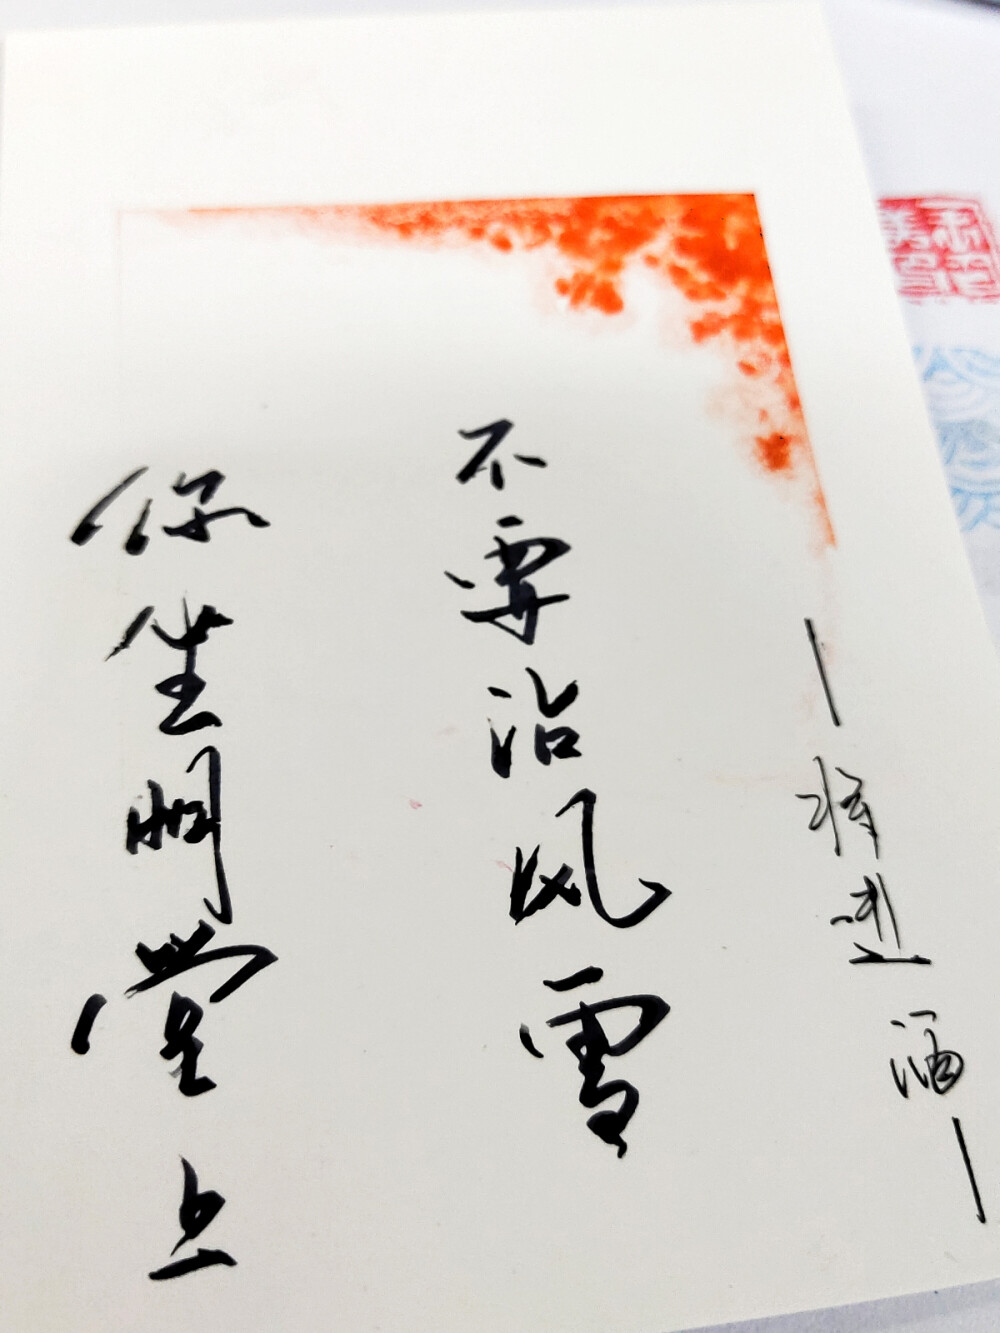 你坐明堂上
不要沾风雪
—将进酒—